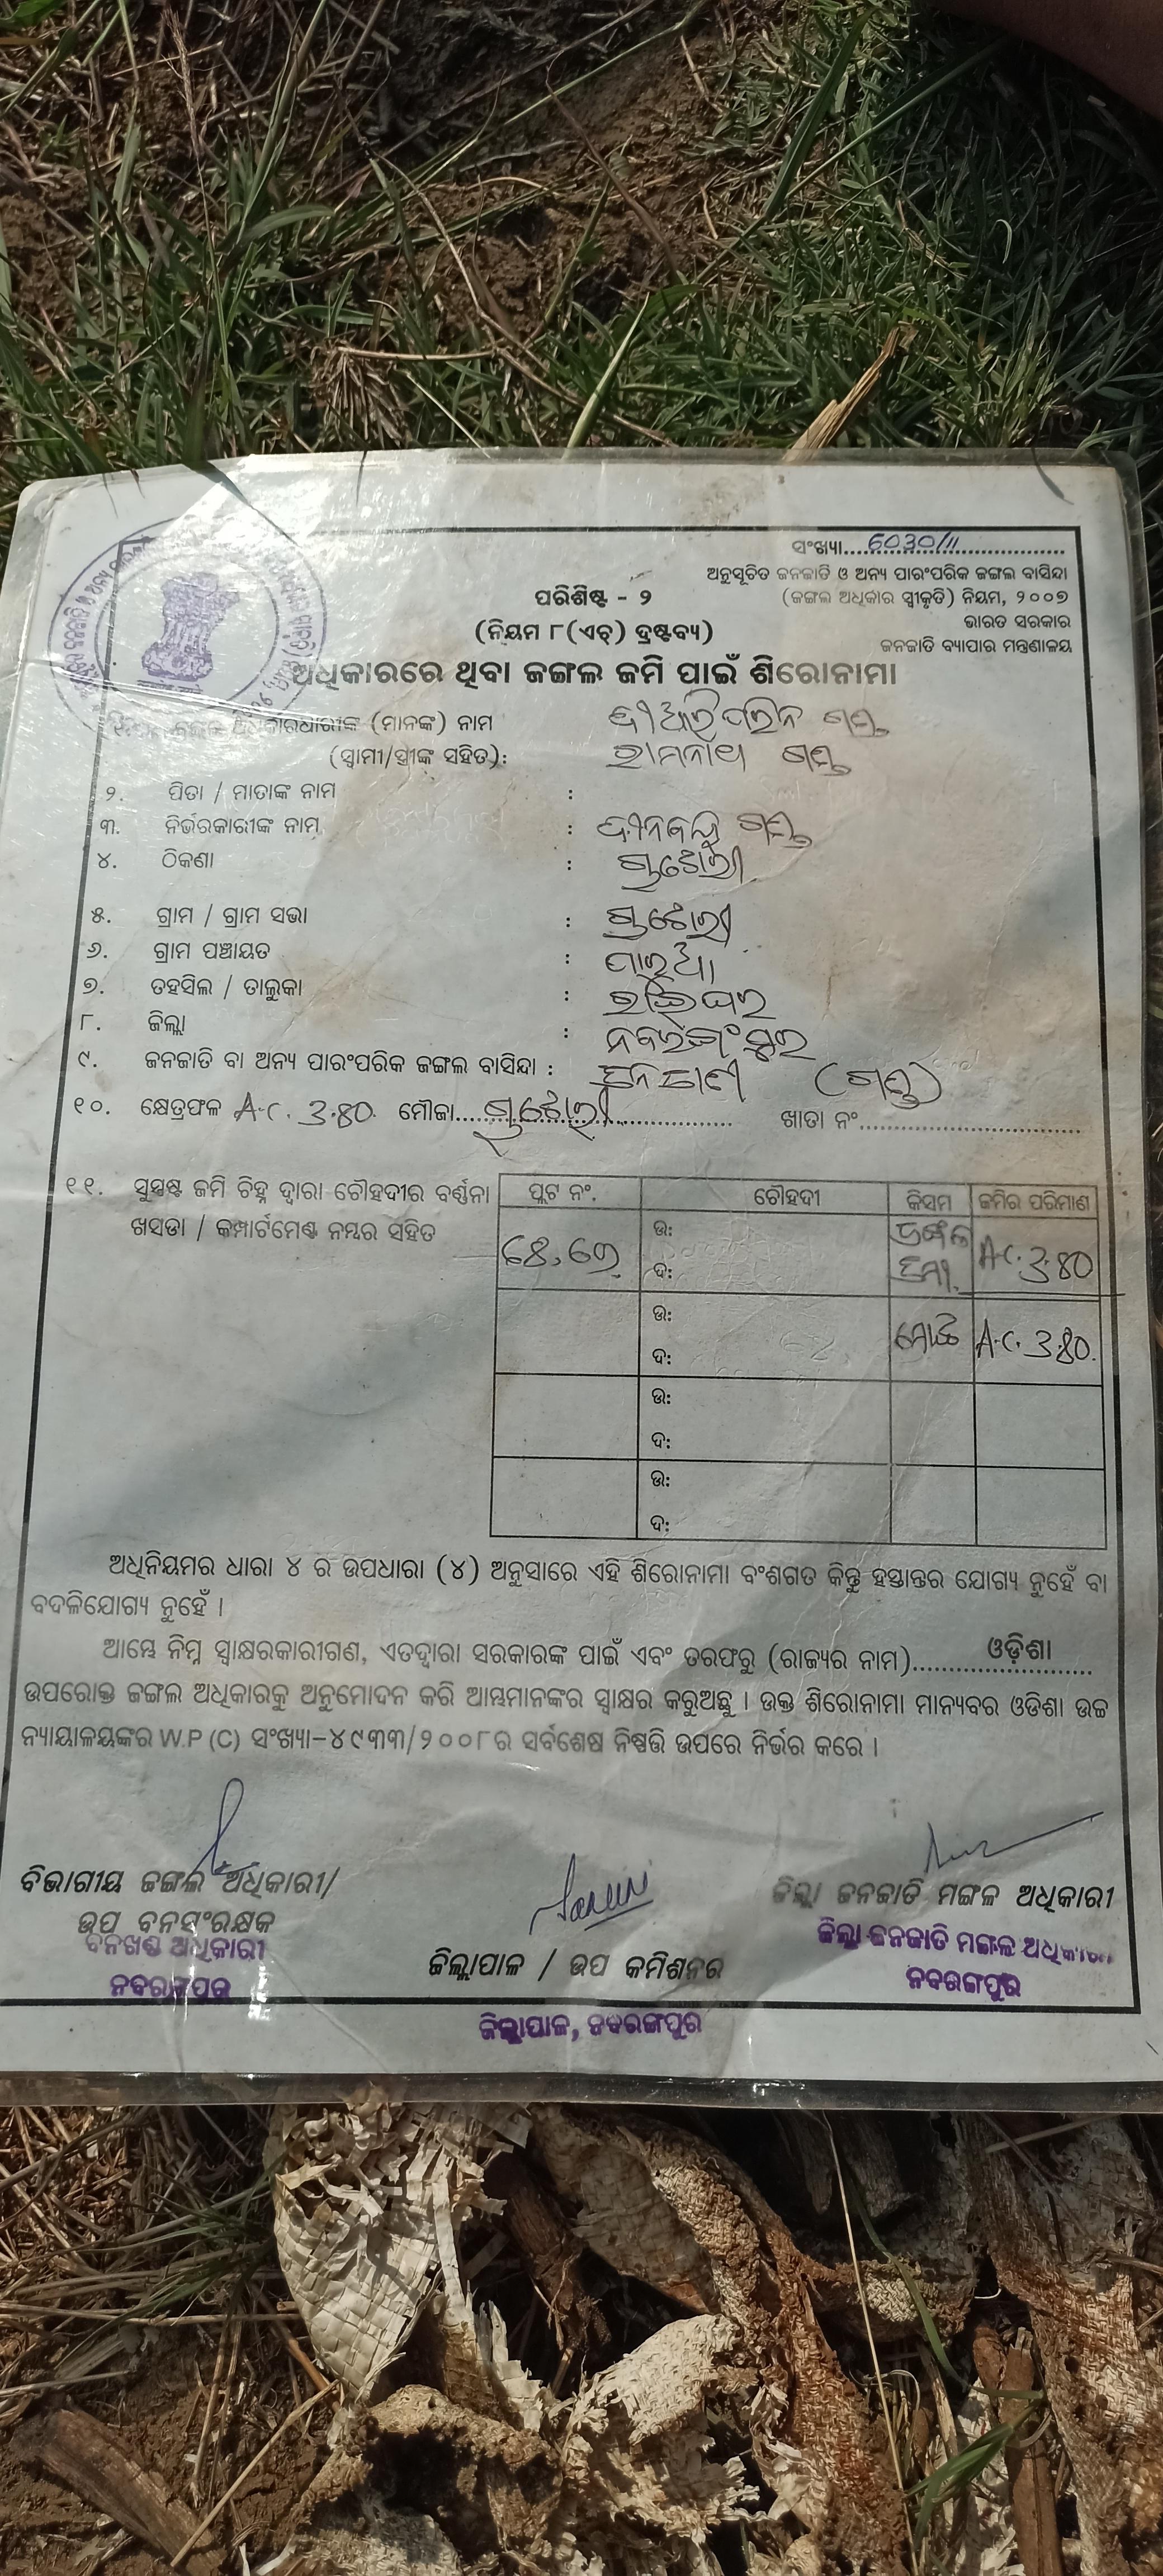 ସଂଖ୍ୟା....6030/11....
ଅନୁସୂଚିତ ଜନଜାତି ଓ ଅନ୍ୟ ପାରଂପରିକ ଜଙ୍ଗଲ ବାସିନ୍ଦା
(ଜଙ୍ଗଲ ଅଧିକାର ସ୍ୱୀକୃତି) ନିୟମ, ୨୦୦୭
ଭାରତ ସରକାର
ଜନଜାତି ବ୍ୟାପାର ମନ୍ତ୍ରଣାଳୟ
ପରିଶିଷ୍ଟ - ୨
(ନିୟମ ୮(ଏଚ୍) ଦ୍ରଷ୍ଟବ୍ୟ)
ଅଧିକାରରେ ଥିବା ଜଙ୍ଗଲ ଜମି ପାଇଁ ଶିରୋନାମା
ଅଧିକାରଧାରୀଙ୍କ (ମାନଙ୍କ) ନାମ ଗଣ୍ଡ
(ସ୍ୱାମୀ/ସ୍ତ୍ରୀଙ୍କ ସହିତ): ରାମନାଥ ଗଣ୍ଡ
୨. ପିତା / ମାତାଙ୍କ ନାମ :
୩. ନିର୍ଭରକାରୀଙ୍କ ନାମ : ଦୀନବନ୍ଧୁ ଗଣ୍ଡ
୪. ଠିକଣା :
୫. ଗ୍ରାମ / ଗ୍ରାମ ସଭା :
୬. ଗ୍ରାମ ପଞ୍ଚାୟତ :
୭. ତହସିଲ / ତାଲୁକା : ରାଇଘର
୮. ଜିଲ୍ଲା : ନବରଙ୍ଗପୁର
୯. ଜନଜାତି ବା ଅନ୍ୟ ପାରଂପରିକ ଜଙ୍ଗଲ ବାସିନ୍ଦା : ଜନଜାତୀ (ଗଣ୍ଡ)
୧୦. କ୍ଷେତ୍ରଫଳ A.C. 3.80 ମୌଜା........ ଖାତା ନଂ........
୧୧. ସୁସ୍ପଷ୍ଟ ଜମି ଚିହ୍ନ ଦ୍ୱାରା ଚୌହଦୀର ବର୍ଣ୍ଣନା
ଖସଡା / କମ୍ପାର୍ଟମେଣ୍ଟ ନମ୍ବର ସହିତ
ପ୍ଲଟ ନଂ. ଚୌହଦୀ କିସମ ଜମିର ପରିମାଣ
ଉ: ଜଙ୍ଗଲ
ଦ: ଜମି A.C. 3.80
ଉ: ମୋଟ A.C. 3.80.
ଦ:
ଉ:
ଦ:
ଉ:
ଦ:
ଅଧିନିୟମର ଧାରା ୪ ର ଉପଧାରା (୪) ଅନୁସାରେ ଏହି ଶିରୋନାମା ବଂଶଗତ କିନ୍ତୁ ହସ୍ତାନ୍ତର ଯୋଗ୍ୟ ନୁହେଁ ବା
ବଦଳିଯୋଗ୍ୟ ନୁହେଁ ।
ଆମ୍ଭେ ନିମ୍ନ ସ୍ୱାକ୍ଷରକାରୀଗଣ, ଏତଦ୍ୱାରା ସରକାରଙ୍କ ପାଇଁ ଏବଂ ତରଫରୁ (ରାଜ୍ୟର ନାମ)....ଓଡ଼ିଶା....
ଉପରୋକ୍ତ ଜଙ୍ଗଲ ଅଧିକାରକୁ ଅନୁମୋଦନ କରି ଆମ୍ଭମାନଙ୍କର ସ୍ୱାକ୍ଷର କରୁଅଛୁ । ଉକ୍ତ ଶିରୋନାମା ମାନ୍ୟବର ଓଡିଶା ଉଚ୍ଚ
ନ୍ୟାୟାଳୟଙ୍କର W.P (C) ସଂଖ୍ୟା-୪୯୩୩/୨୦୦୮ର ସର୍ବଶେଷ ନିଷ୍ପତ୍ତି ଉପରେ ନିର୍ଭର କରେ ।
ବିଭାଗୀୟ ଜଙ୍ଗଲ ଅଧିକାରୀ/
ଉପ ବନସଂରକ୍ଷକ
ବନଖଣ୍ଡ ଅଧିକାରୀ
ନବରଙ୍ଗପୁର
ଜିଲ୍ଲାପାଳ / ଉପ କମିଶନର
ଜିଲ୍ଲାପାଳ, ନବରଙ୍ଗପୁର
ଜିଲ୍ଲା ଜନଜାତି ମଙ୍ଗଳ ଅଧିକାରୀ
ଜିଲ୍ଲା ଜନଜାତି ମଙ୍ଗଳ ଅଧିକାରୀ
ନବରଙ୍ଗପୁର